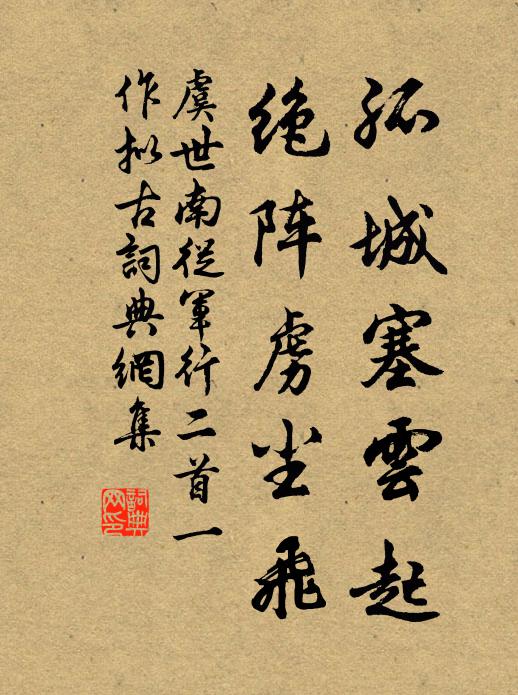 孤城塞雲起
绝阵虏尘飛
虞世南從軍行二首一
作拟古詞典網集
詞典
网印